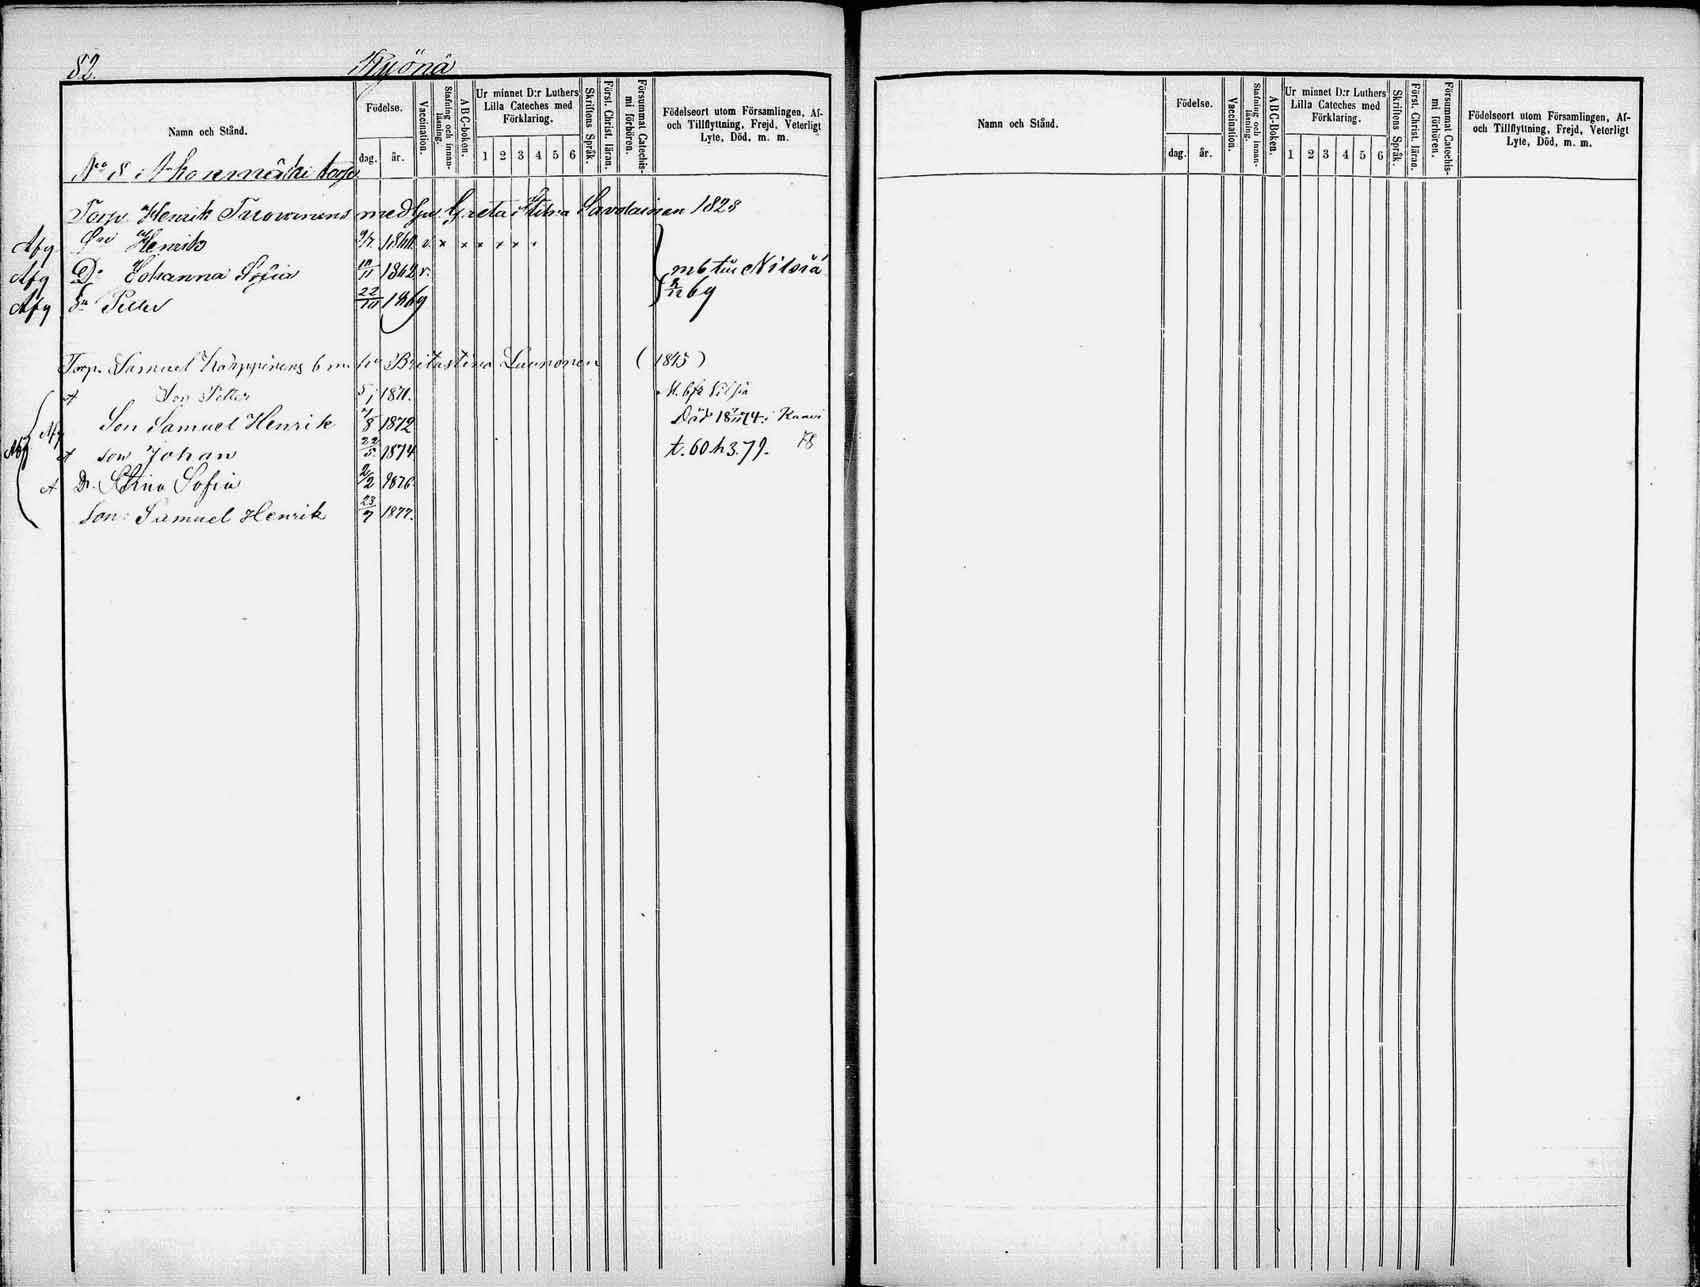 82. Ryönä
Namn och Stånd.
Födelse.
dag. år.
Vaccination.
Stafning och innanläsning.
ABC-boken.
Ur minnet D:r Luthers Lilla Cateches med Förklaring.
1 2 3 4 5 6
Skriftens Språk.
Först. Christ. läran.
Försummat Catechismi förhören.
Födelseort utom Församlingen, Af- och Tillflyttning, Frejd, Veterligt Lyte, Död, m. m.
No 8 Ahonmäki torp
Torp. Henrik Turowinens med hu Greta Stina Savolainen 1828
Afg Henrik 9/7 1860 v. x x x x x x
Afg Dr Johanna Sofia 10/11 1862 v. mb till Nilsiä
Afg Sn Petter 22/10 1869 69
Torp. Samuel Karppinens b m. hu Brita Stina Luononen (1845)
Son Petter 5/1 1871. Nilsiä
Afg Son Samuel Henrik 7/8 1872 Död 1874 i Kaavi
son Johan 22/5 1874 t. 60 h 3. 79. 78
Dr. Stina Sofia 2/2 1876.
Son: Samuel Henrik 23/7 1877.
Namn och Stånd.
Födelse.
dag. år.
Vaccination.
Stafning och innanläsning.
ABC-Boken.
Ur minnet D:r Luthers Lilla Cateches med Förklaring.
1 2 3 4 5 6
Skriftens Språk.
Först. Christ. läran.
Försummat Catechismi förhören.
Födelseort utom Församlingen, Af- och Tillflyttning, Frejd, Veterligt Lyte, Död, m. m.